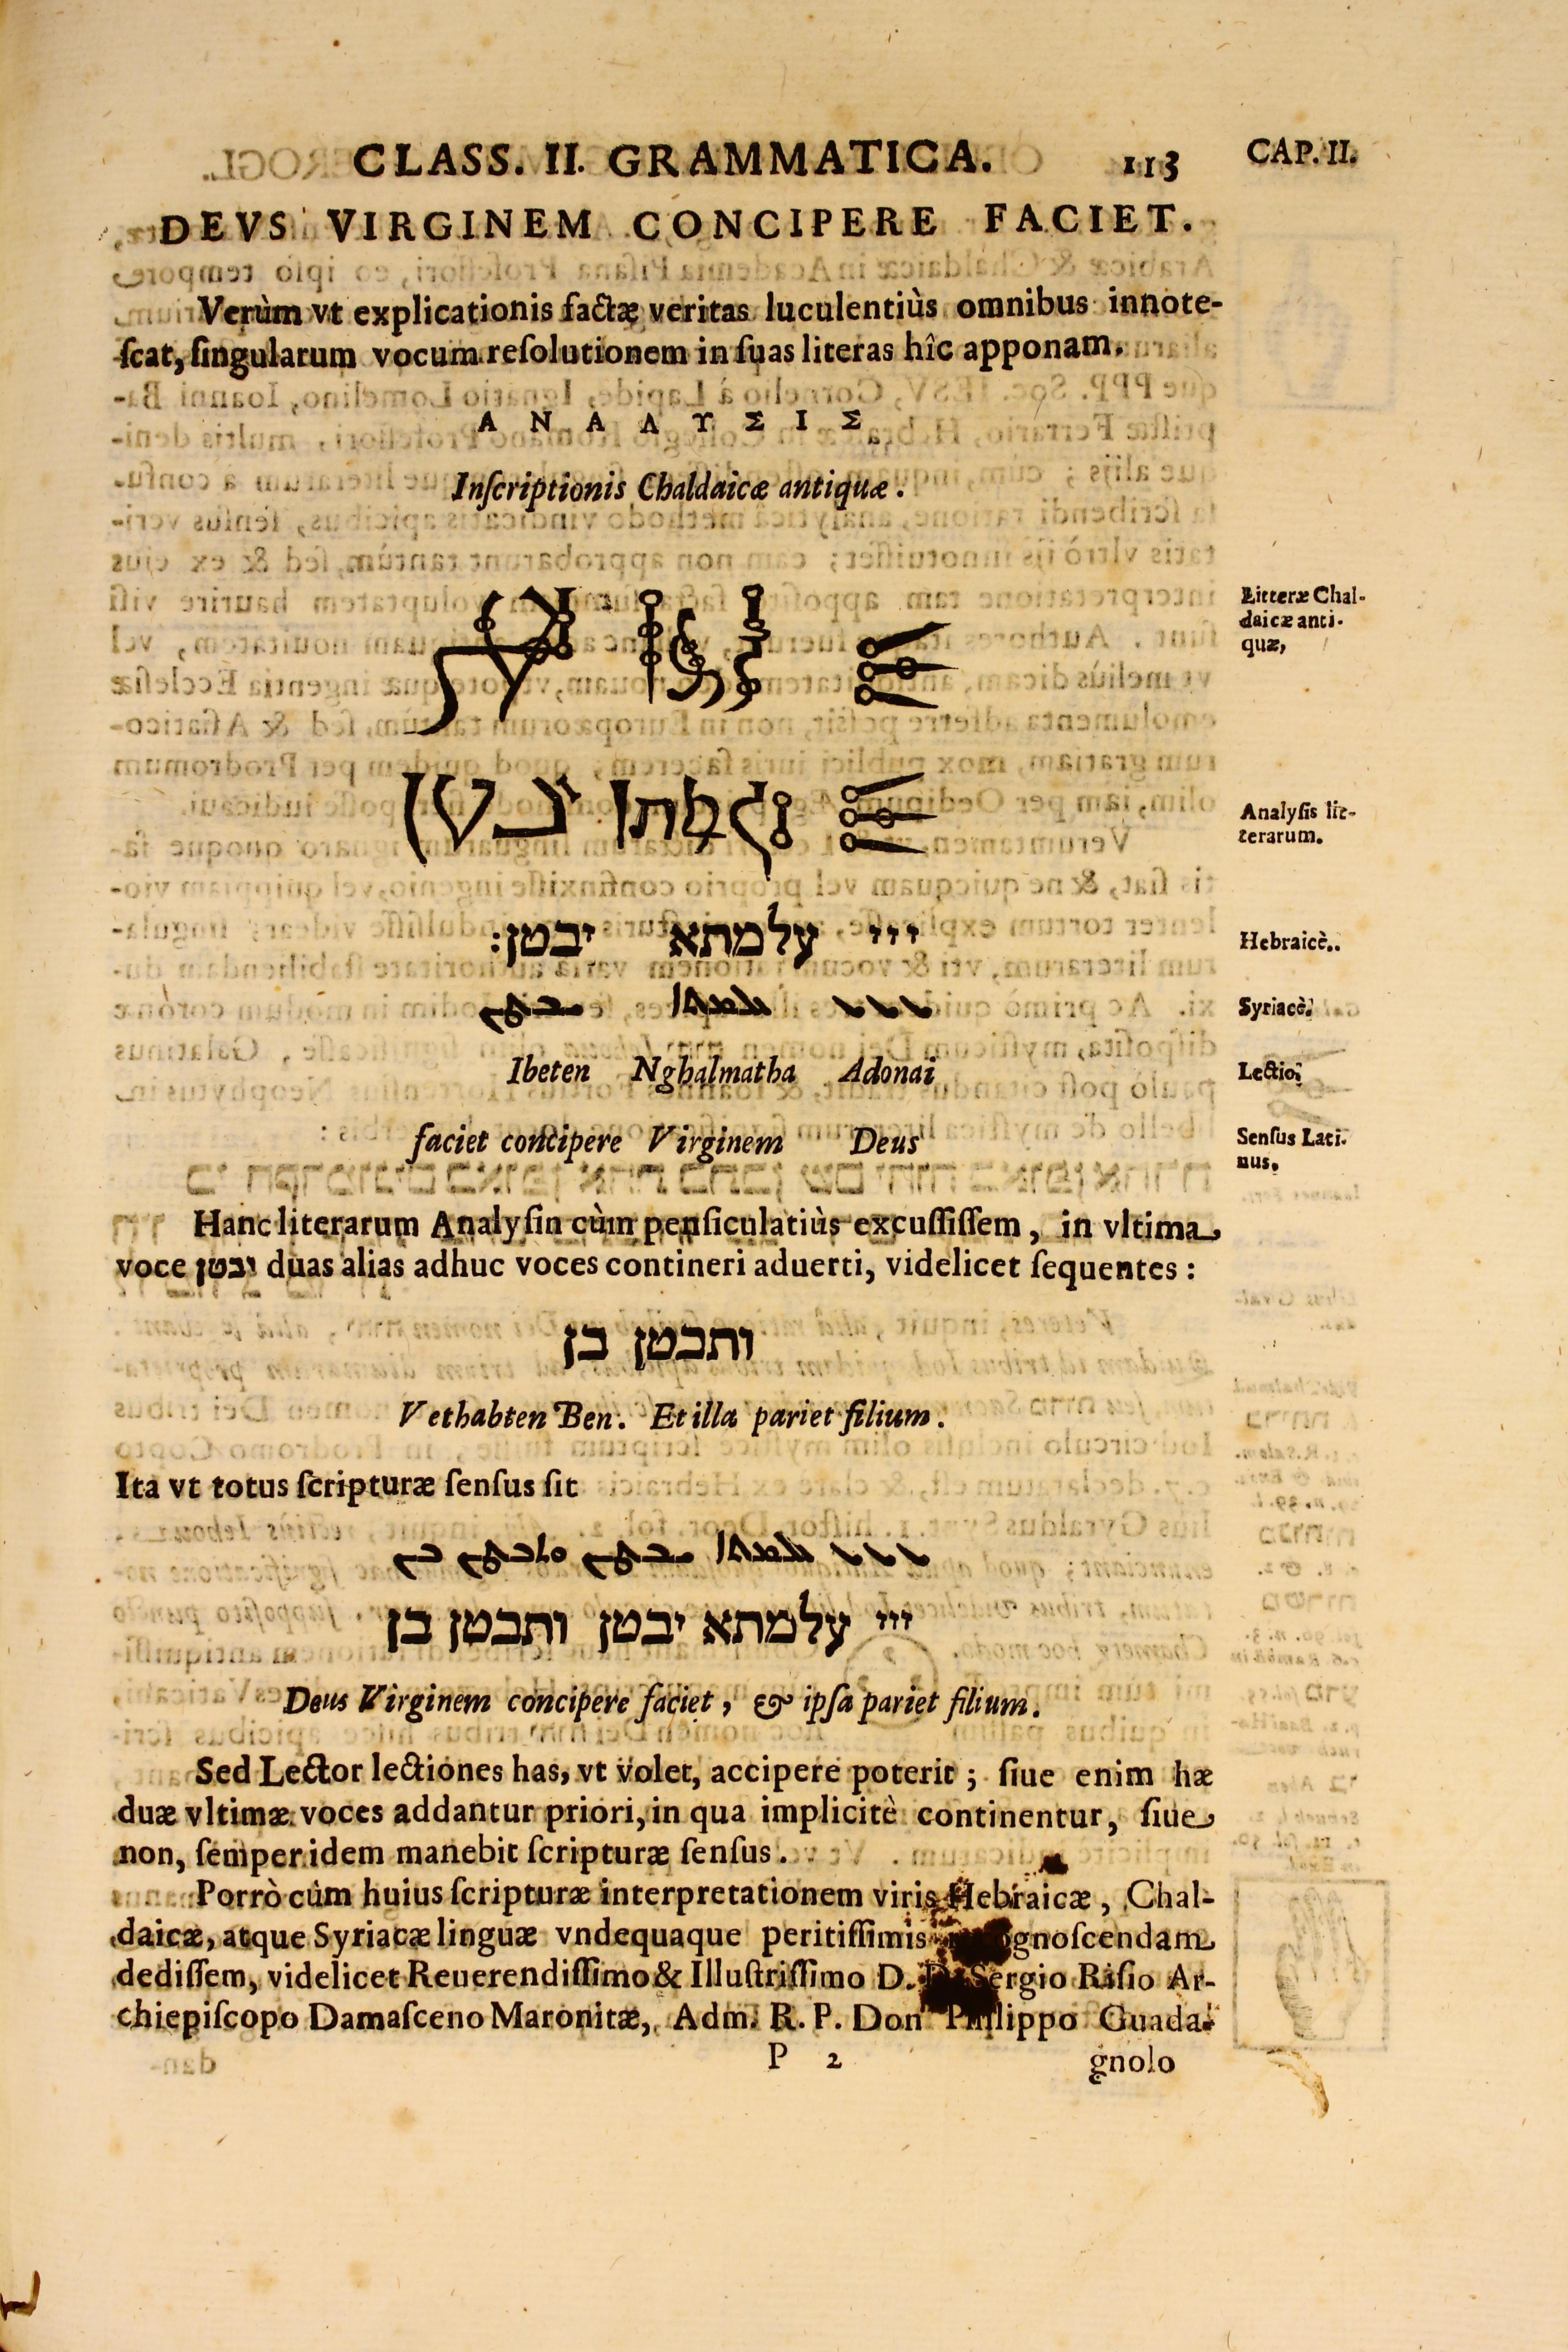 CLASS. II. GRAMMATICA. 113 CAP. II.
DEVS VIRGINEM CONCIPERE FACIET.
Verùm vt explicationis factæ veritas luculentiùs omnibus innote-
ſcat, ſingularum vocum reſolutionem in ſuas literas hîc apponam.
Α Ν Α Λ Υ Σ Ι Σ
Inſcriptionis Chaldaicæ antiquæ.
Litteræ Chal-
daicæ anti-
quæ,
Analyſis lit-
terarum.
ייי עלמתא יבטן:
Hebraicè.
ܝܝܝ ܥܠܡܬܐ ܝܒܛܢ
Syriacè.
Ibeten Nghalmatha Adonai
Lectio.
faciet concipere Virginem Deus
Senſus Lati-
nus.
Hanc literarum Analyſin cùm penſiculatiùs excuſſiſſem, in vltima
voce יבטן duas alias adhuc voces contineri aduerti, videlicet ſequentes:
ותבטן בן
Vethabten Ben. Et illa pariet filium.
Ita vt totus ſcripturæ ſenſus ſit
ܝܝܝ ܥܠܡܬܐ ܝܒܛܢ ܘܬܒܛܢ ܒܢ
ייי עלמתא יבטן ותבטן בן
Deus Virginem concipere faciet, & ipſa pariet filium.
Sed Lector lectiones has, vt volet, accipere poterit; ſiue enim hæ
duæ vltimæ voces addantur priori, in qua implicitè continentur, ſiue
non, ſemper idem manebit ſcripturæ ſenſus.
Porrò cùm huius ſcripturæ interpretationem viris Hebraicæ, Chal-
daicæ, atque Syriacæ linguæ vndequaque peritiſſimis gnoſcendam
dediſſem, videlicet Reuerendiſſimo & Illuſtriſſimo D. Sergio Riſio Ar-
chiepiſcopo Damaſceno Maronitæ, Adm. R. P. Don Philippo Guada-
P 2 gnolo